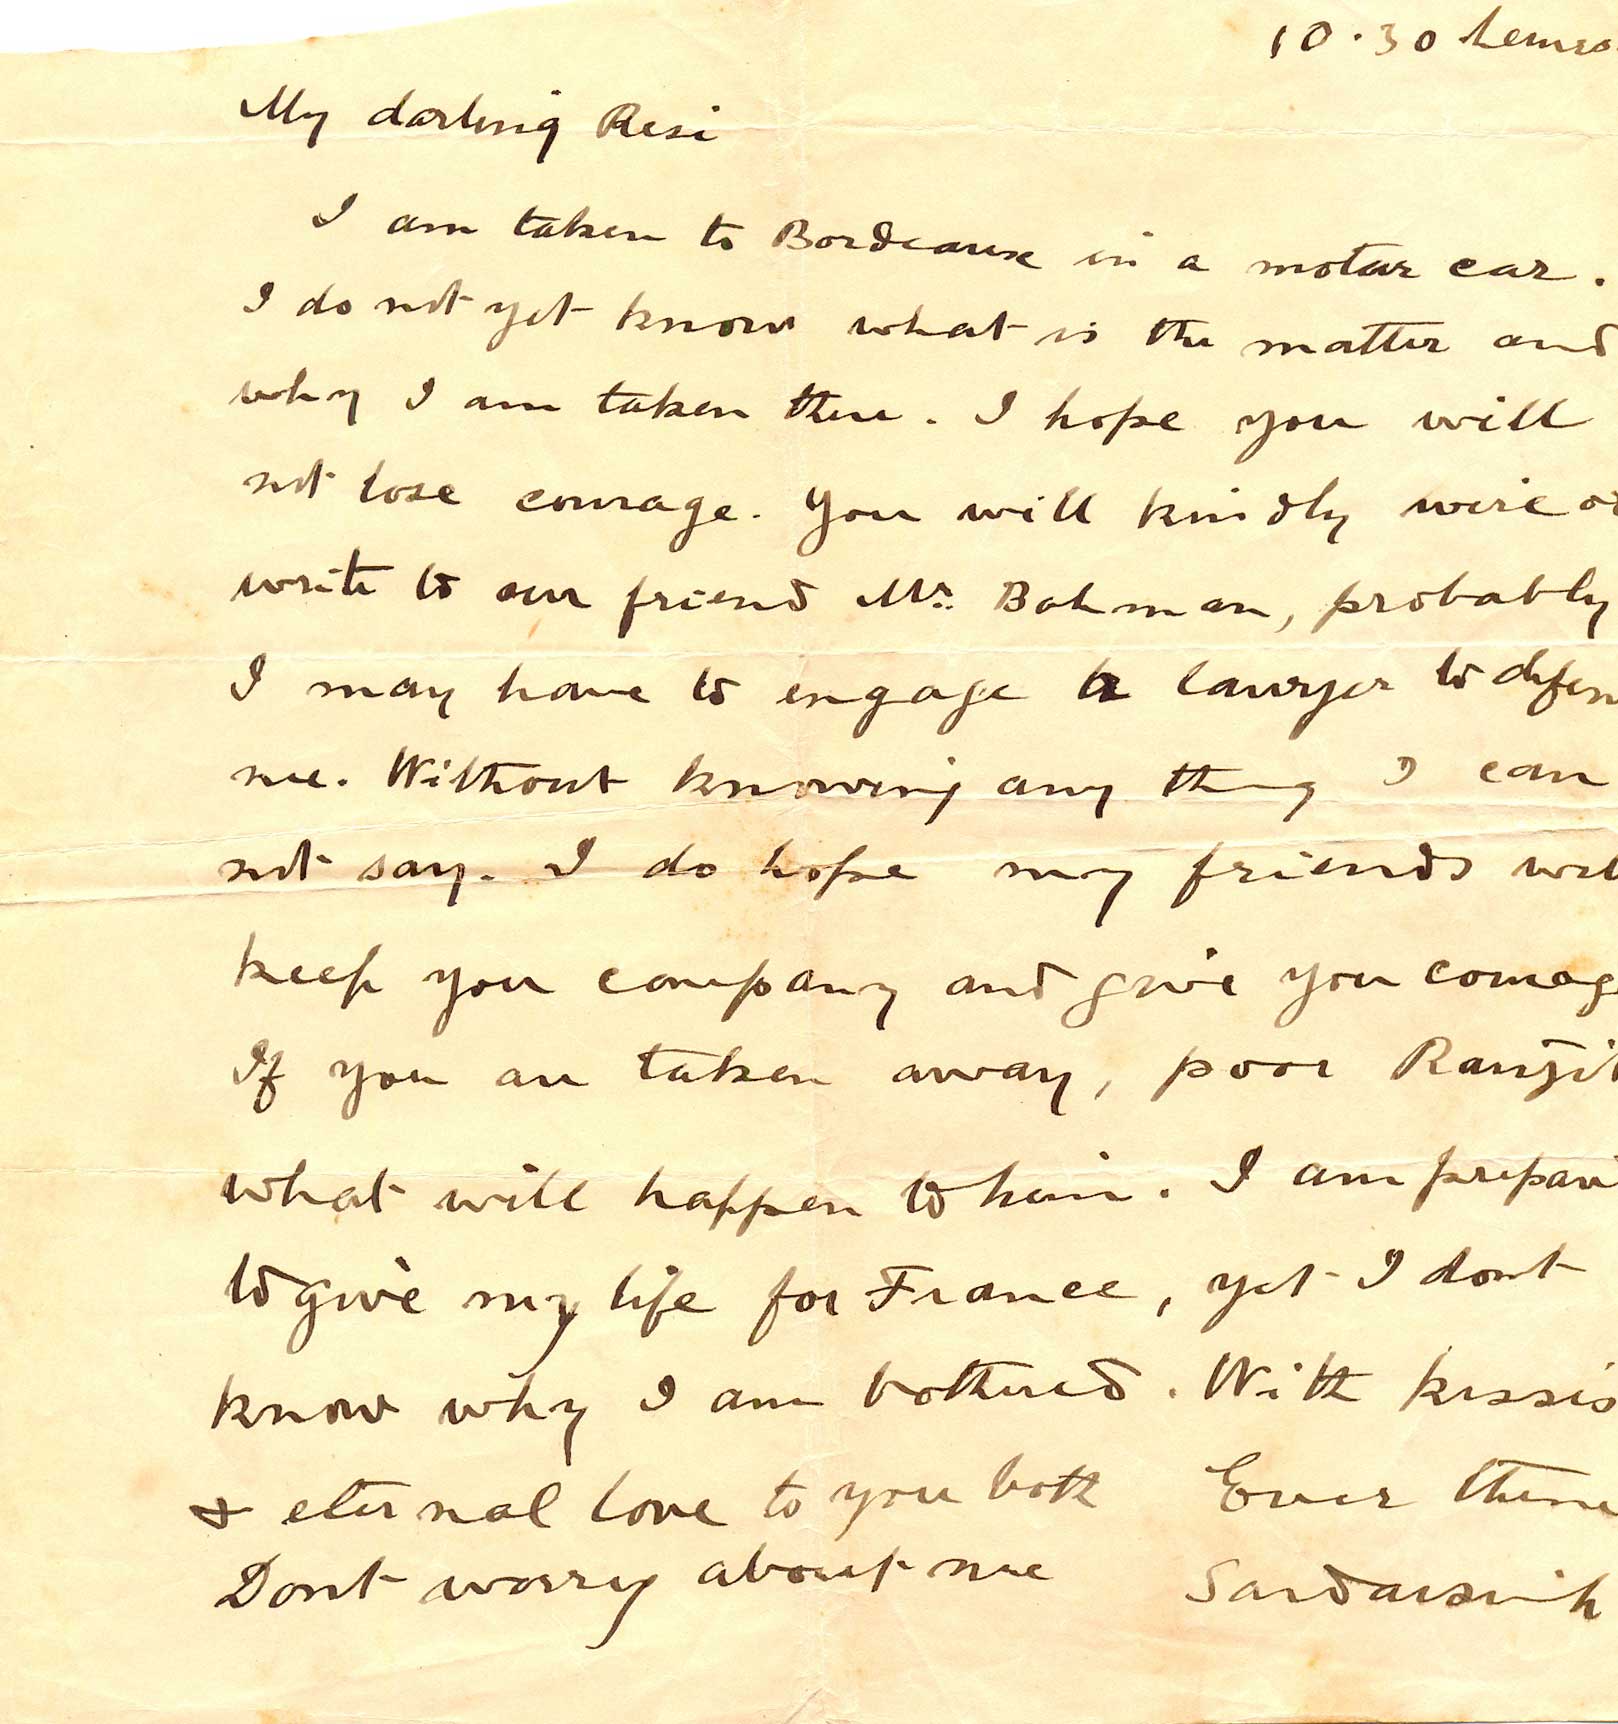 10.30
My darling Resi
I am taken to Bordeaux in a motor car.
I do not yet know what is the matter and
why I am taken there. I hope you will
not lose courage. You will kindly wire or
write to our friend Mr. Bohman, probably
I may have to engage a lawyer to defen
me. Without knowing any thing I can
not say. I do hope my friends will
keep you company and give you courage
If you are taken away, poor Ranjit
what will happen to him. I am prepari
to give my life for France, yet I dont
know why I am bothered. With kisses
& eternal love to you both Ever thine
Dont worry about me Sardarsinh